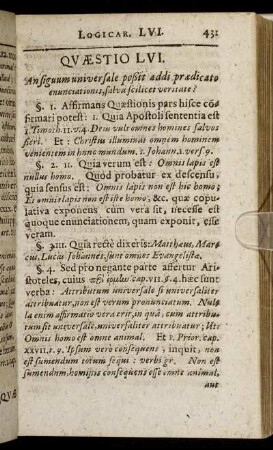 LOGICAR. LVI. 431
QVÆSTIO LVI.
An signum universale possit addi prædicato
enunciationis, salva scilicet veritate?
§. 1. Affirmans Quæstionis pars hisce cõ-
firmari potest: 1. Quia Apostoli sententia est
1. Timoth. 11. v. 4. Deus vult omnes homines salvos
fieri. Et: Christus illuminat omnem hominem
venientem in hunc mundum. 1. Johann. 1. vers. 9.
§. 2. 11. Quia verum est: Omnis lapis est
nullus homo. Quod probatur ex descensu,
quia sensus est: Omnis lapis non est hic homo;
Et omnis lapis non est iste homo, &c. quæ copu-
lativa exponens cum vera sit, necesse est
quoque enunciationem, quam exponit, esse
veram.
§. 3. 111. Quia rectè dixeris: Mattheus, Mar-
cus, Lucas Johannes, sunt omnes Evangelistæ.
§. 4. Sed pro negante parte assertur Ari-
stoteles, cuius cap. VII. §. 4. hæc sunt
verba: Attributum universale si universaliter
attribuatur, non est verum pronunciatum. Nul-
la enim affirmatio vera erit, in quâ, cum attribu-
tum sit universale, universaliter attribuatur; Ut:
Omnis homo est omne animal. Et 1. Prior. cap.
XXVII. t. 9. Ipsum verò consequens, inquit, non
est sumendum totum sequi: verbi gr. Non est
sumendum, hominis consequens esse omne animal,
aut